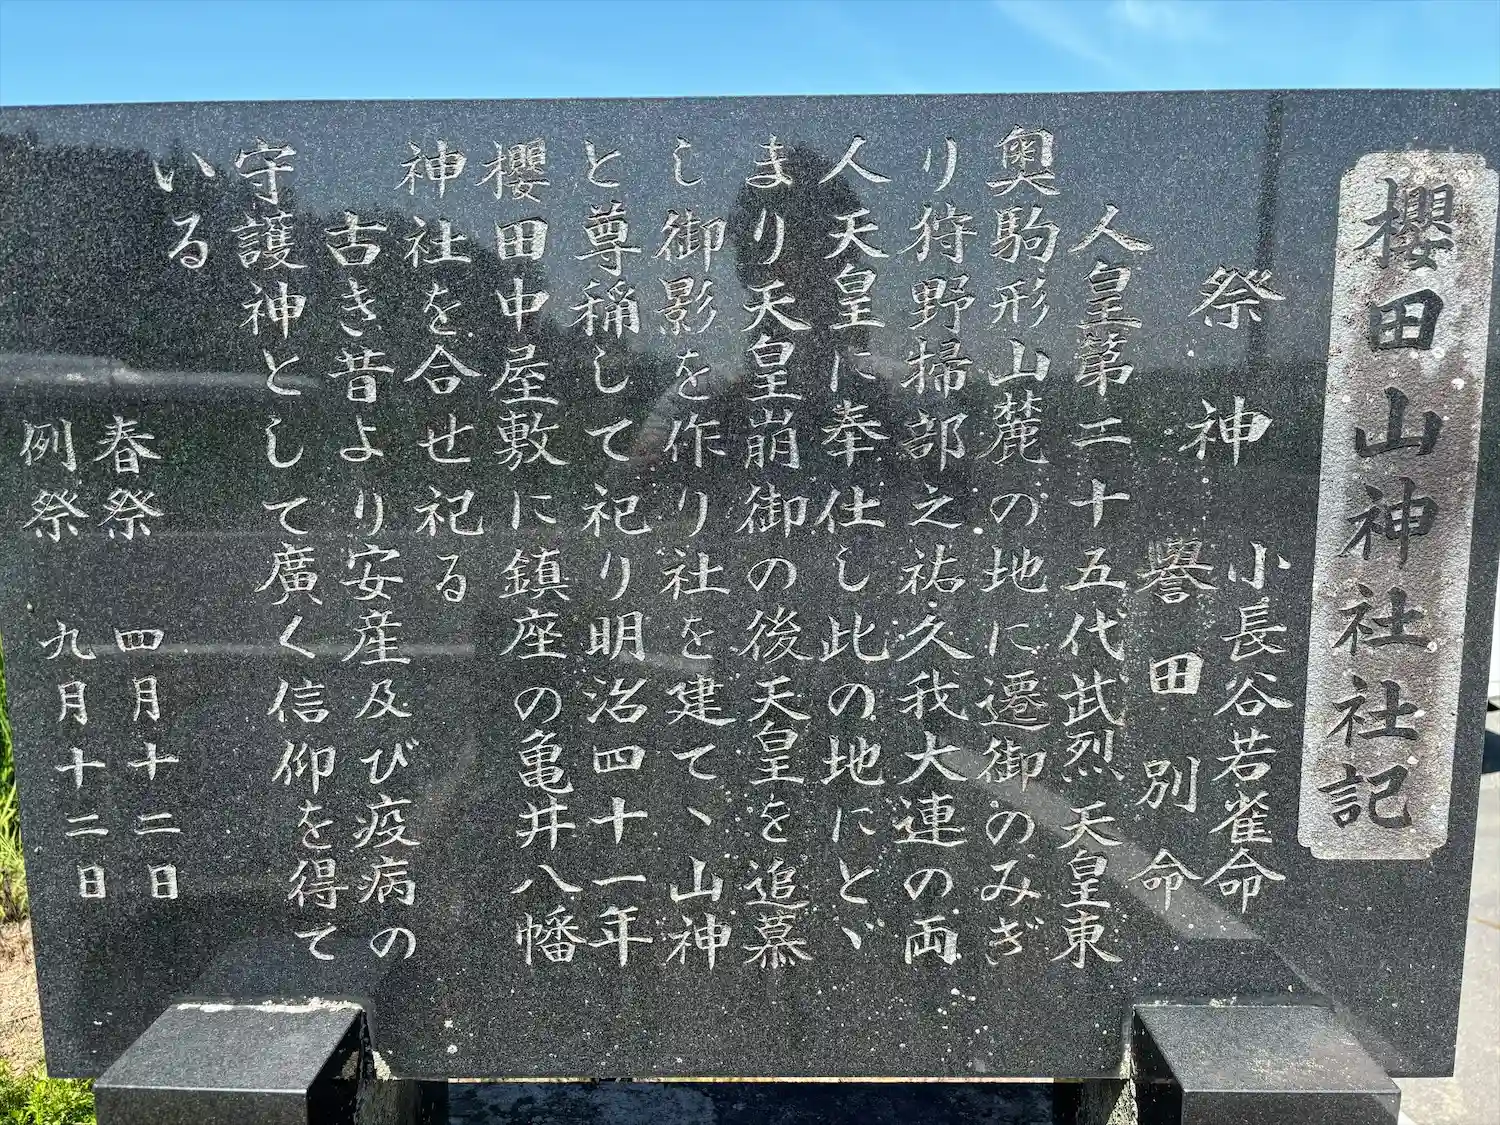 櫻田山神社社記
祭神
小長谷若雀命
譽田別命
人皇第二十五代武烈天皇東
奥駒形山麓の地に遷御のみぎ
り狩野掃部之祐久我大連の両
人天皇に奉仕し此の地にとゞ
まり天皇崩御の後天皇を追慕
し御影を作り社を建て、山神
と尊稱して祀り明治四十一年
櫻田中屋敷に鎮座の亀井八幡
神社を合せ祀る
古き昔より安産及び疫病の
守護神として廣く信仰を得て
いる
春祭 四月十二日
例祭 九月十二日